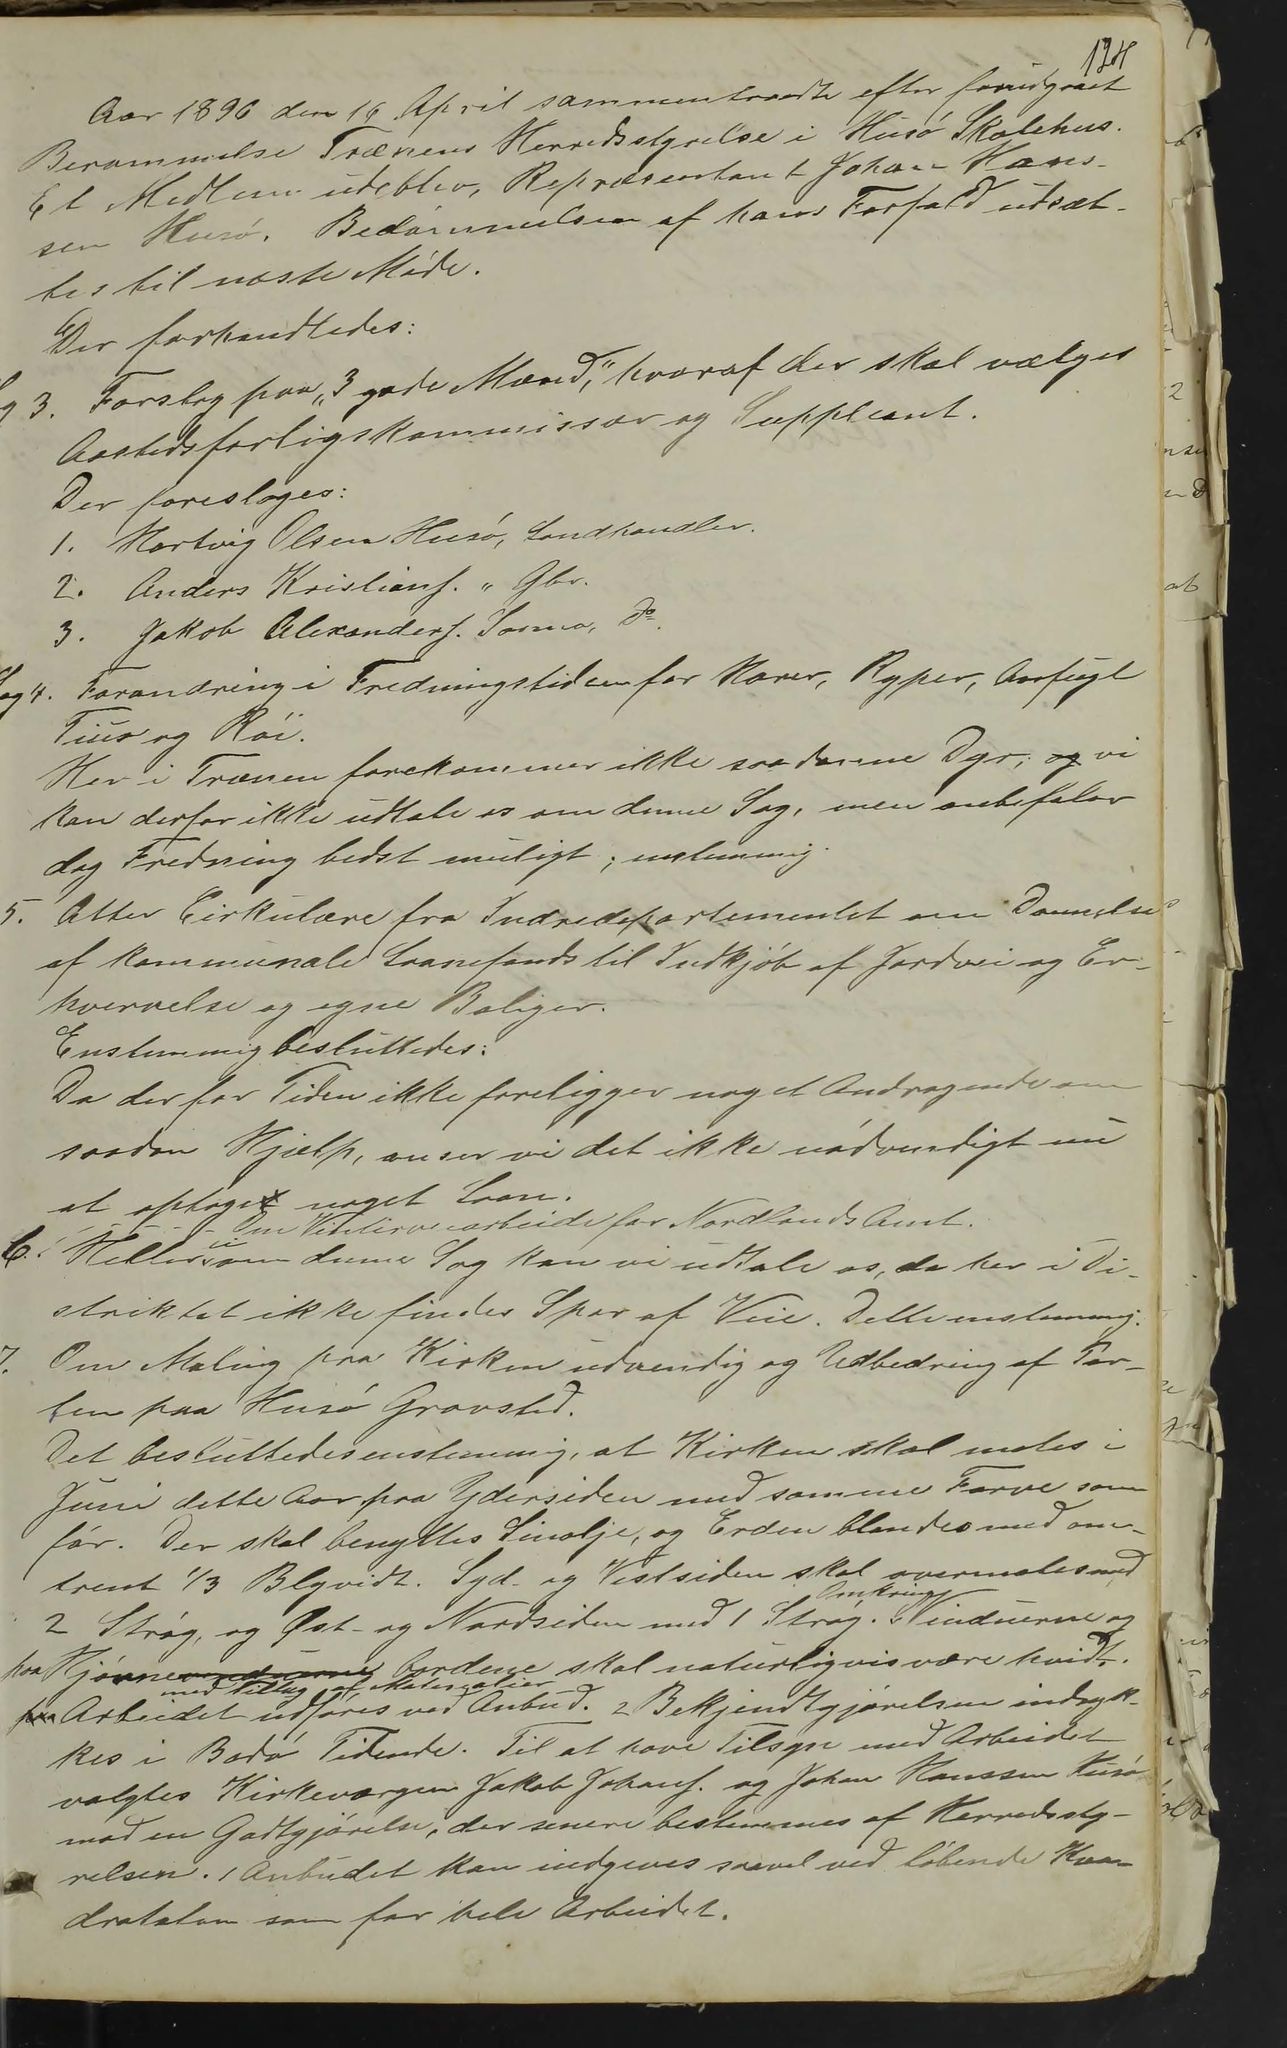 124
Aar 1896 den 16 April sammentraadte efter forudgaaet
Berammelse Trænens Herredsstyrelse i Husø Skolehus.
Et Medlem udeblev, Repræsentant Johan Hans-
sen Husø. Bedømmelsen af hans Forfald udsæt-
tes til næste Møde.
Der forhandledes:
Sag 3. Forslag paa "3 gode Mænd", hvoraf der skal vælges
Aastedsforligskommissær og Suppleant.
Der foresloges:
1. Hartvig Olsen Husø, Landhandler.
2. Anders Kristians. " Gbr.
3. Jakob Alexanders. Sanna, do.
Sag 4. Forandring i Fredningstiden for Harer, Ryper, Aarfugl
Tiur og Röi.
Her i Trænen forekommer ikke saadanne Dyr; og vi
kan derfor ikke udtale os om denne Sag, men anbefaler
dog Fredning bedst muligt; enstemmig.
5. Atter Cirkulære fra Indredepartementet om Dannelse
af kommunale Laanefonds til Indkjøb af Jordvei og Er-
hvervelse og egne Boliger.
Enstemmig besluttedes:
Da der for Tiden ikke foreligger noget Andragende om
saadan Hjælp, anser vi det ikke nødvendigt nu
at optaget noget Laan.
Om Vinterveiarbeide for Nordlands Amt.
6. Heller ei om denne Sag kan vi udtale os, da her i Di-
striktet ikke findes Spor af Veie. Dette enstemmig.
7. Om Maling paa Kirken udvendig og Udbedring af Por-
ten paa Husø Gravsted.
Det besluttedes enstemmig, at Kirken skal males i
Juni dette Aar paa Ydersiden med samme Farve som
før. Der skal benyttes Linolje, og Erden blandes med om-
trent 1/3 Blyvidt. Syd- og Vestsiden skal overmales med
2 Strøg, og Øst- og Nordsiden med 1 Strøg. Omkring Vinduerne og
paa Hjørnevinduerne bordene skal naturligvis være hvidt.
paa Arbeidet med Tillæg af Materialier udføres ved Anbud. 2 Bekjendtgjørelsen indryk-
kes i Bodø Tidende. Til at have Tilsyn med Arbeidet
valgtes Kirkeværgen Jakob Johans. og Johan Hanssen Husø
mod en Godtgjørelse, der senere bestemmes af Herredssty-
relsen. 1 Anbudet kan indgives saavel ved løbende Kva-
dratalen som for hele Arbeidet.